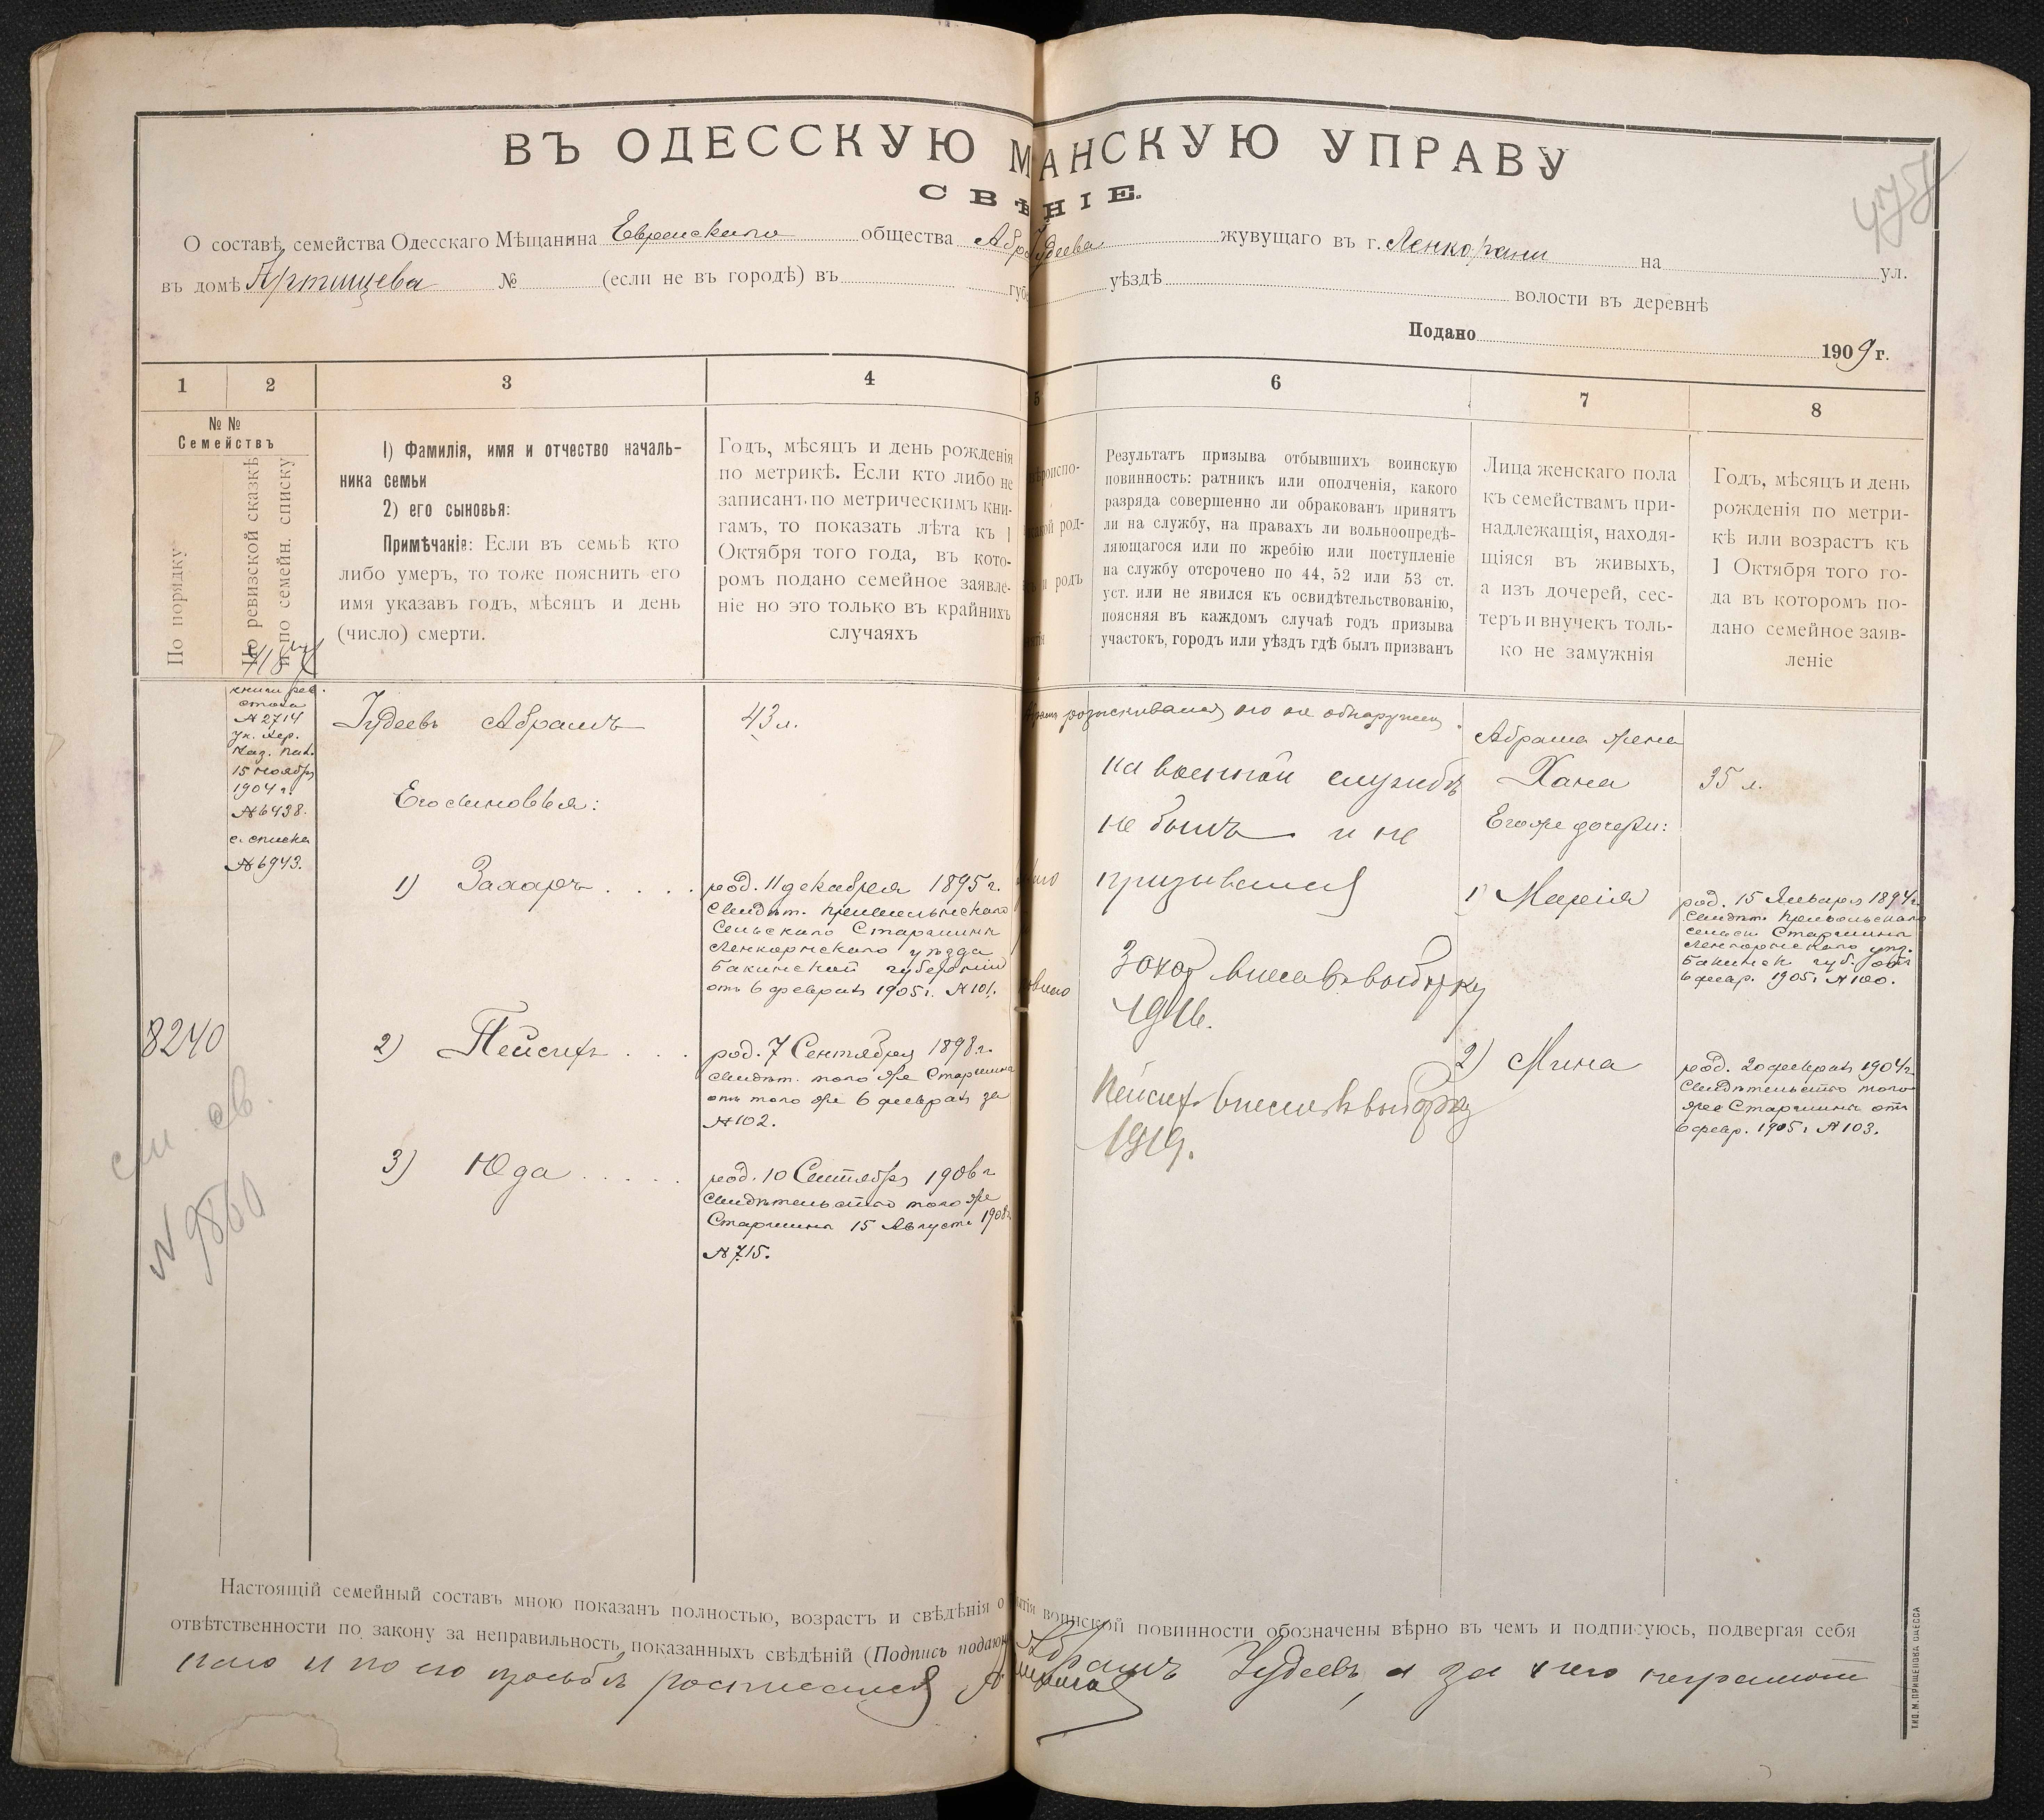 ВЪ ОДЕССКУЮ М АНСКУЮ УПРАВУ
СВѢ НІЕ.
О составѣ семейства Одесскаго Мѣщанина Еврейскаго общества Абр Іудеева жувущаго въ г. Ленкорани на ул.
въ домѣ Артищева № (если не въ городѣ) въ губе уѣздѣ волости въ деревнѣ
Подано 1909 г.
1 2 3 4 5 6 7 8
№ №
Семействъ
По порядку
По ревизской сказкѣ
и по семейн. списку
1) Фамилія, имя и отчество началь-
ника семьи
2) его сыновья:
Примѣчаніе: Если въ семьѣ кто
либо умеръ, то тоже пояснить его
имя указавъ годъ, мѣсяцъ и день
(число) смерти.
Годъ, мѣсяцъ и день рожденія
по метрикѣ. Если кто либо не
записанъ по метрическимъ кни-
гамъ, то показать лѣта къ 1
Октября того года, въ кото-
ромъ подано семейное заявле-
ніе но это только въ крайнихъ
случаяхъ
роиспо-
род-
и родъ
Результатъ призыва отбывшихъ воинскую
повинность: ратникъ или ополченія, какого
разряда совершенно ли обракованъ принятъ
ли на службу, на правахъ ли вольноопредѣ-
ляющагося или по жребію или поступленіе
на службу отсрочено по 44, 52 или 53 ст.
уст. или не явился къ освидѣтельствованію,
поясняя въ каждомъ случаѣ годъ призыва
участокъ, городъ или уѣздъ гдѣ былъ призванъ
Лица женскаго пола
къ семействамъ при-
надлежащія, находя-
щіяся въ живыхъ,
а изъ дочерей, сес-
теръ и внучекъ толь-
ко не замужнія
Годъ, мѣсяцъ и день
рожденія по метри-
кѣ или возрастъ къ
1 Октября того го-
да въ которомъ по-
дано семейное заяв-
леніе
книги рев.
стола
№ 2714
ук. Хер.
Каз. Пал.
15 ноября
1904 г.
№ 6438.
с. списка
№ 6943.
8240
см. об.
№ 9860
Іудеевъ Абрамъ
Его сыновья:
1) Захаръ . . . .
2) Пейсихъ . . .
3) Юда . . . . .
43 л.
род. 11 декабря 1895 г.
Свидѣт. Привольнскаго
Сельскаго Старшины
Ленкорнскаго уѣзда
Бакинской губерніи
отъ 6 февраля 1905 г. № 101.
род. 7 Сентября 1898 г.
Свидѣт. того же Старшины
отъ того же 6 февраля за
№ 102.
род. 10 Сентября 1906 г
Свидѣтельство того же
Старшины 15 Августа 1908 г.
№ 715.
розыскивался но не обнаружен.
на военной службѣ
не былъ и не
призывался
Захар внесен в выборку
1916.
Пейсих внесен в выборку
1919.
Абрама жена
Хана
Его же дочери:
1) Марія
2) Мина
35 л.
род. 15 Января 1894 г.
Свидѣт. Привольнскаго
сельск. Старшины
Ленкорнскаго уѣз.
Бакинск. губ. отъ
6 февр. 1905 г. № 100.
род. 20 февраля 1904 г.
Свидѣтельство того
же Старшины отъ
6 февр. 1905 г. № 103.
Настоящій семейный составъ мною показанъ полностью, возрастъ и свѣдѣнія о воинской повинности обозначены вѣрно въ чемъ и подписуюсь, подвергая себя
отвѣтственности по закону за неправильность показанныхъ свѣдѣній (Подпись подаю Абрамъ Іудеевъ, а за него неграмот
наго и по его просьбѣ росписался
ТИП. М. ПРИЩЕПОВА ОДЕССА